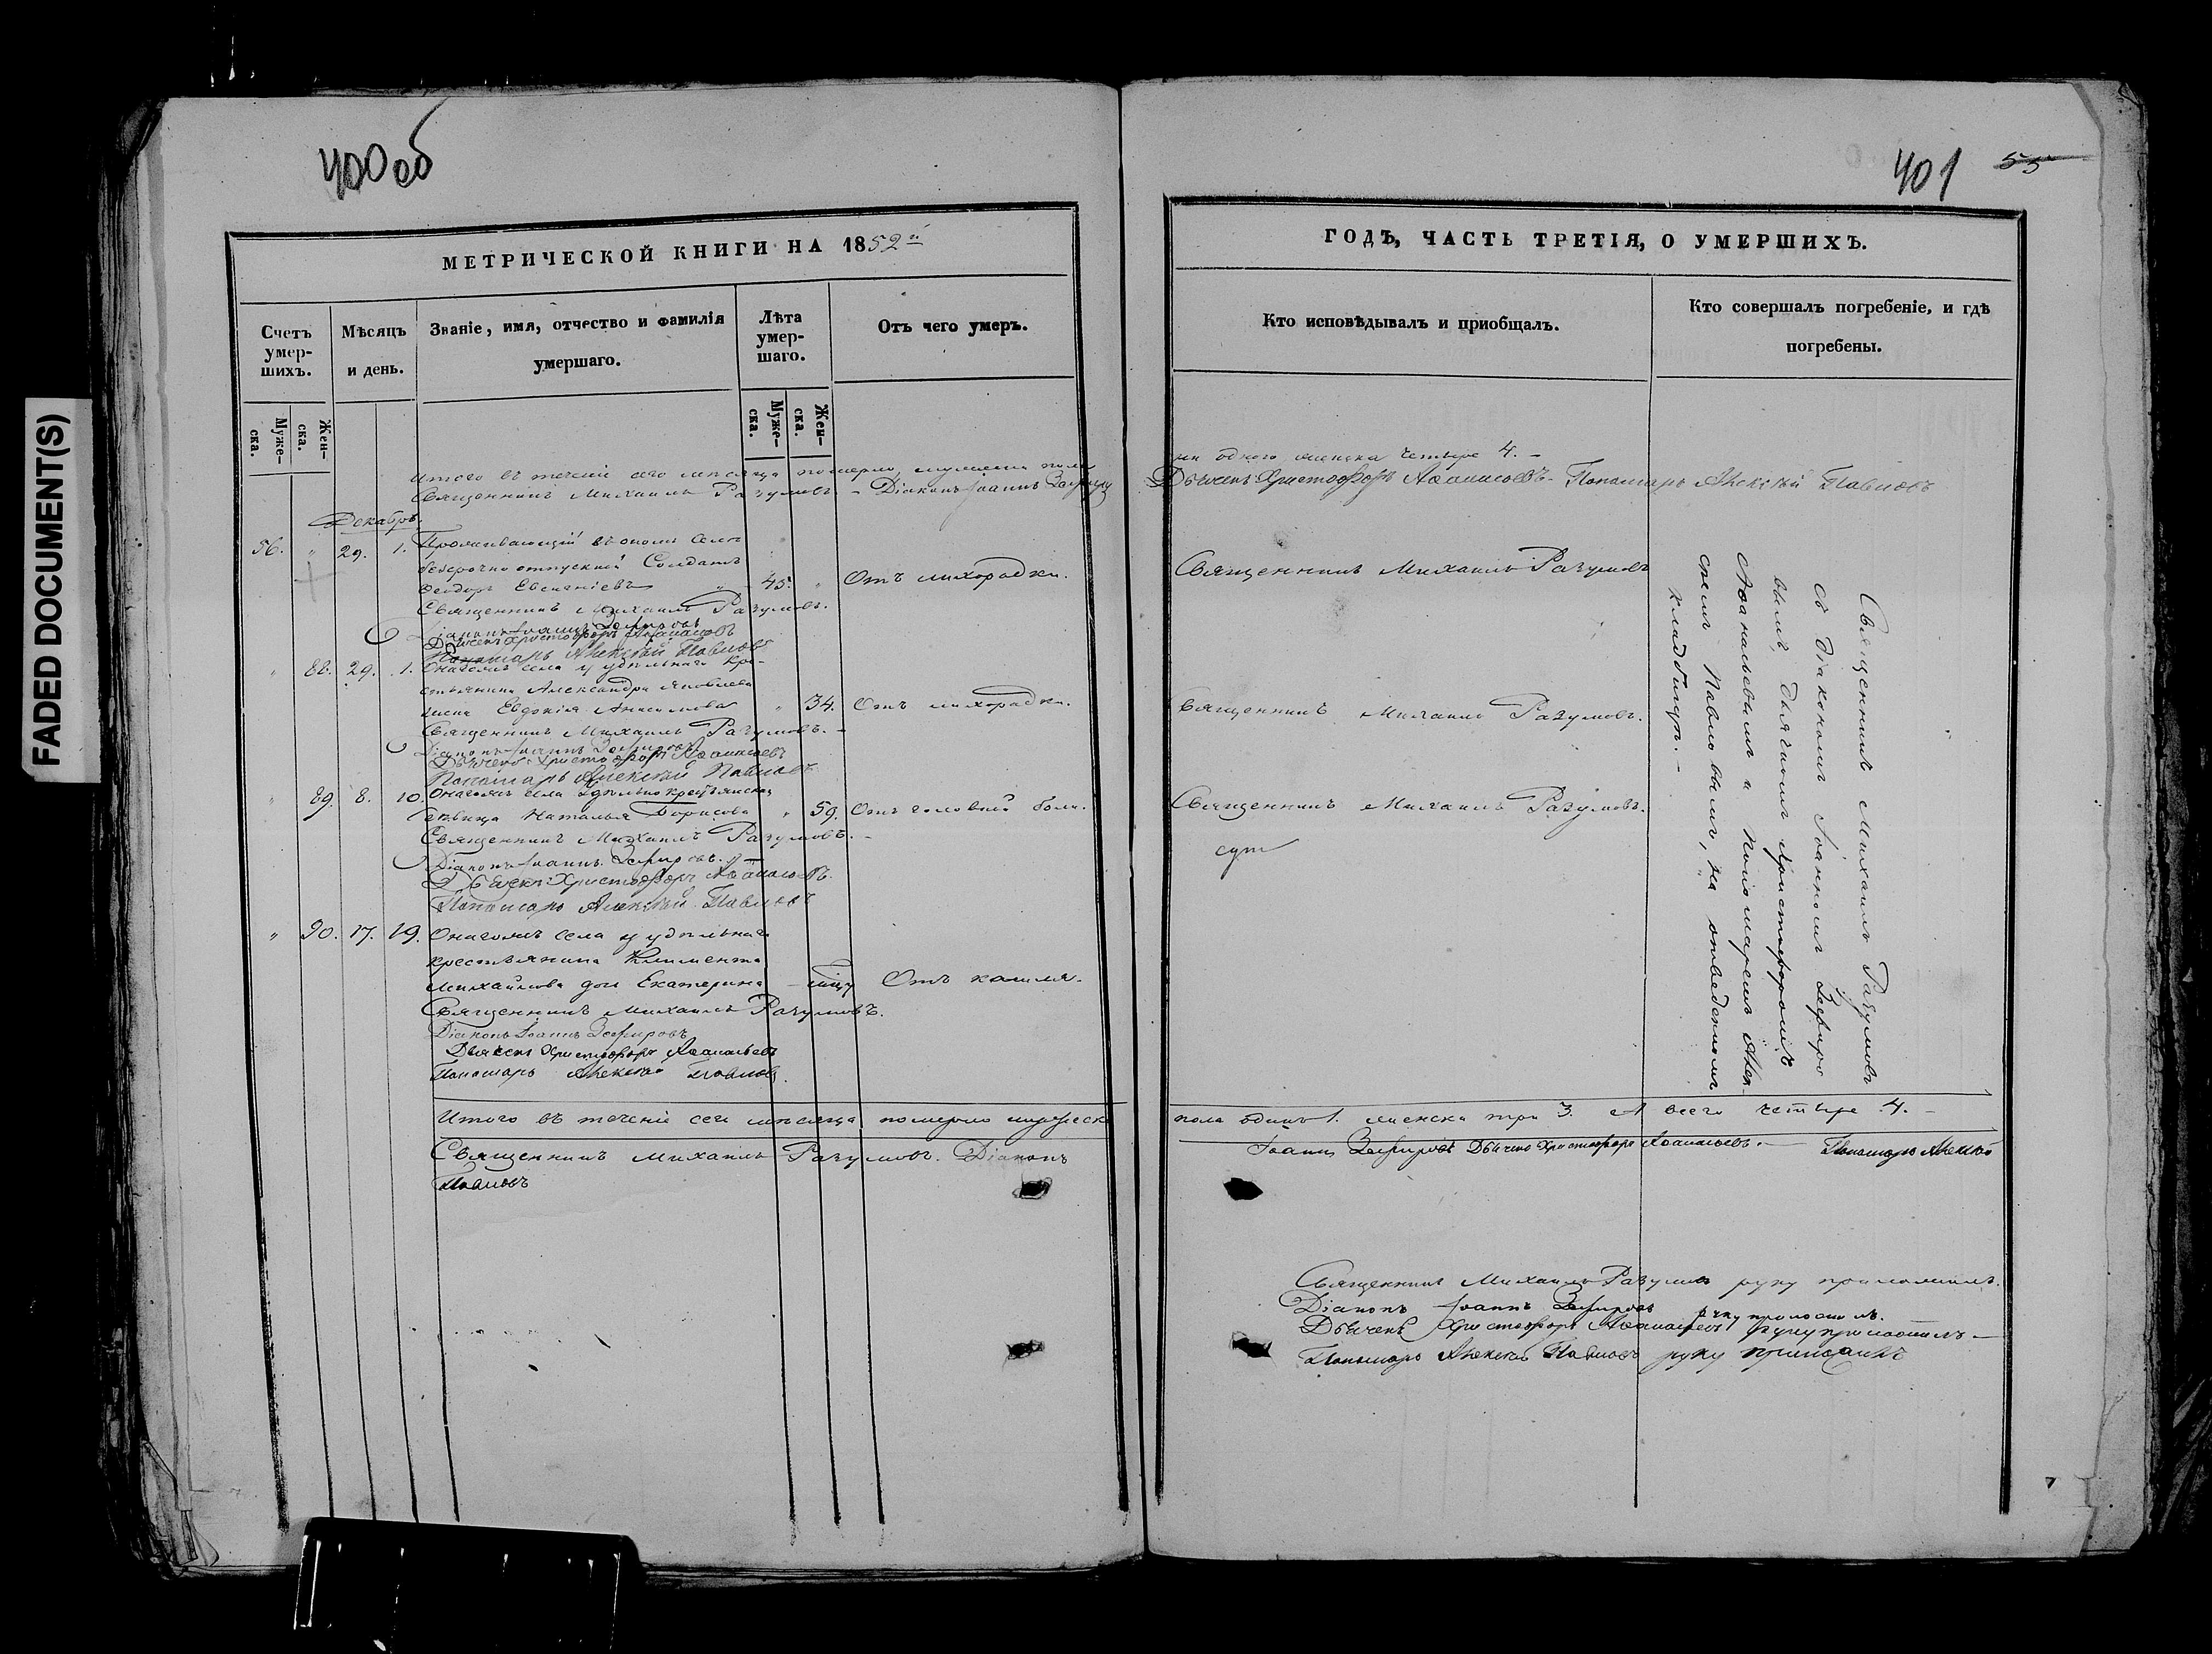 FADED DOCUMENT(S)
400 об
МЕТРИЧЕСКОЙ КНИГИ НА 1852й
Счетъ умер-шихъ.
Мѣсяцъ и день.
Званіе, имя, отчество и фамилія умершаго.
Лѣта умер-шаго.
Отъ чего умеръ.
Муже-ска.
Жен-ска.
Муже-ска.
Жен-ска.
Итого въ теченіи сего мѣсяца померло мужеска пола
Священникъ Михаилъ Разумовъ. - Діаконъ Іоаннъ Зефировъ
Декабрь.
56. " 29. 1. Проживающій въ ономъ селѣ
безсрочно отпускной Солдатъ
Ѳеодоръ Евгеніевъ " 45. " Отъ лихорадки.
Священникъ Михаилъ Разумовъ.
Діаконъ Іоаннъ Зефировъ
Дьячекъ Христофоръ Аѳанасьевъ
Пономарь Алексѣй Павловъ
" 88. 29. 1. Онагожъ села удѣльнаго кре-
стьянина Александра Яковлева
жена Евдокія Анисимова " 34. Отъ лихорадки.
Священникъ Михаилъ Разумовъ. -
Діаконъ Іоаннъ Зефировъ
Дьячекъ Христофоръ Аѳанасьевъ
Пономарь Алексѣй Павловъ
" 89. 8. 10. Онагожъ села удѣльно крестьянская
девица Наталья Борисова " 59. Отъ головной боли.
Священникъ Михаилъ Разумовъ. -
Діаконъ Іоаннъ Зефировъ
Дьячекъ Христофоръ Аѳанасьевъ.
Пономарь Алексѣй Павловъ
" 90. 17. 19. Онагожъ села удѣльнаго
крестьянина Климента
Михайлова дочь Екатерина Отъ кашля.
Священникъ Михаилъ Разумовъ.
Діаконъ Іоаннъ Зефировъ
Дьячекъ Христофоръ Аѳанасьевъ
Пономарь Алексѣй Павловъ.
Итого въ теченіи сего мѣсяца померло мужеска
Священникъ Михаилъ Разумовъ. Діаконъ
Павловъ
401 55
ГОДЪ, ЧАСТЬ ТРЕТІЯ, О УМЕРШИХЪ.
Кто исповѣдывалъ и приобщалъ.
Кто совершалъ погребеніе, и гдѣ погребены.
ни одного женска четыре 4. -
Дьячекъ Христофоръ Аѳанасьевъ. Пономарь Алексѣй Павловъ
Священникъ Михаилъ Разумовъ
Священникъ Михаилъ Разумовъ.
Священникъ Михаилъ Разумовъ.
Священникъ Михаилъ Разумовъ
съ діакономъ Іоанномъ Зефиро
вымъ, дьячкомъ Христофоромъ
Аѳанасьевымъ и Пономаремъ Алек
сѣемъ Павловымъ, на отведенномъ
кладбищѣ. -
пола одинъ 1. женска три 3. А всего четыре 4. -
Іоаннъ Зефировъ Дьячекъ Христофоръ Аѳанасьевъ. - Пономарь Алексѣй
Священникъ Михаилъ Разумовъ руку приложилъ.
Діаконъ Іоаннъ Зефировъ руку приложилъ.
Дьячекъ Христофоръ Аѳанасьевъ руку приложилъ -
Пономарь Алексѣй Павловъ руку приложилъ